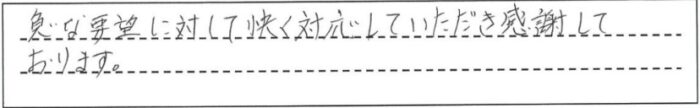 急な要望に対して快く対応していただき感謝して
おります。